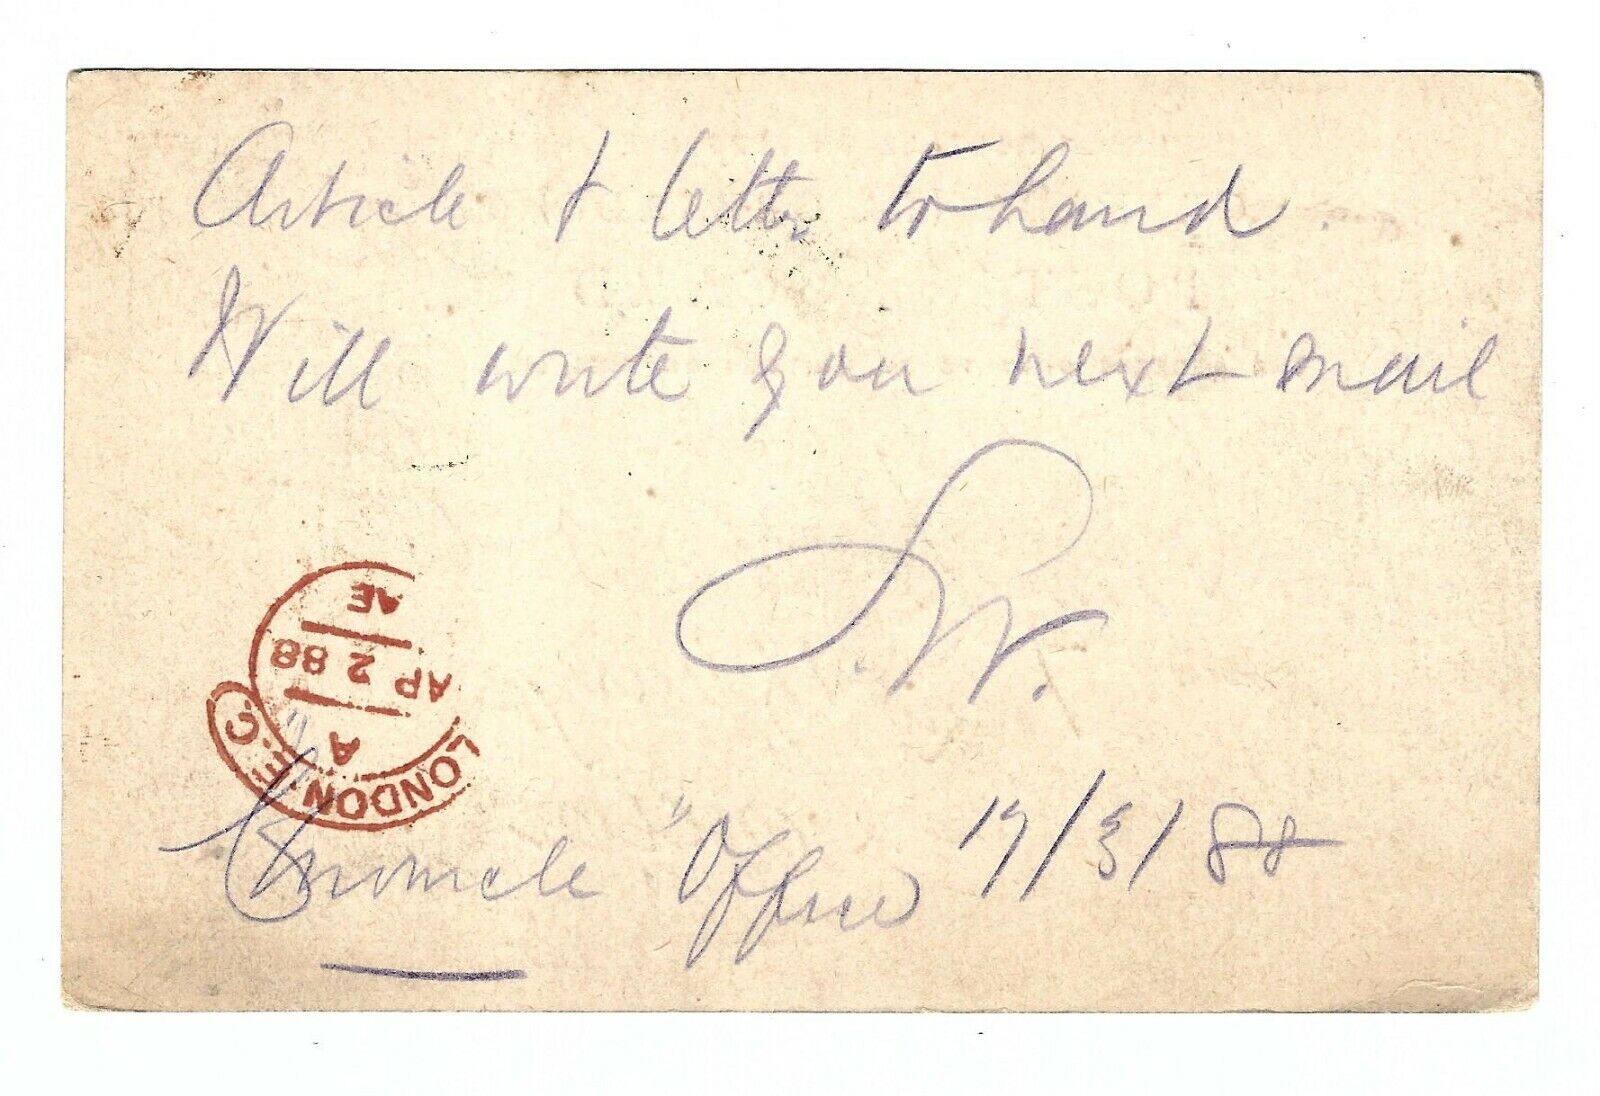 Article & letter to hand.
Will write you next mail
S.W.
"Chronicle" Office 17/3/88
LONDON.E.C.
A
AP 2 88
AE